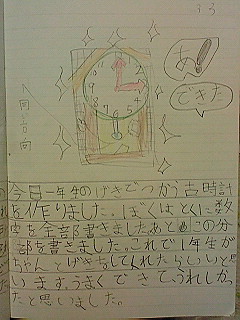 33
あ!
できた
今日一年生のげきでつかう古時計
を作りました。ぼくはとくに数
字を全部書きましたあと この分
部を書きました。これで1年生が
ちゃんとげきをしてくれたらいいと思
います。うまくできてうれしか
たと思いました。